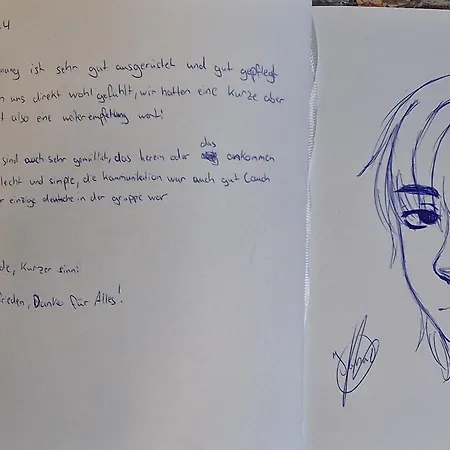 4
nung ist sehr gut ausgerüstet und gut gepflegt
n uns direkt wohl gefühlt, wir hatten eine kurze aber
t also eine weiterempfehlung wert!
das
sind auch sehr gemütlich, das herein oder ankommen
lecht und simple, die kommunikation war auch gut (auch
r einzige deutsche in der gruppe war
de, kurzer sinn:
frieden, Danke für Alles!